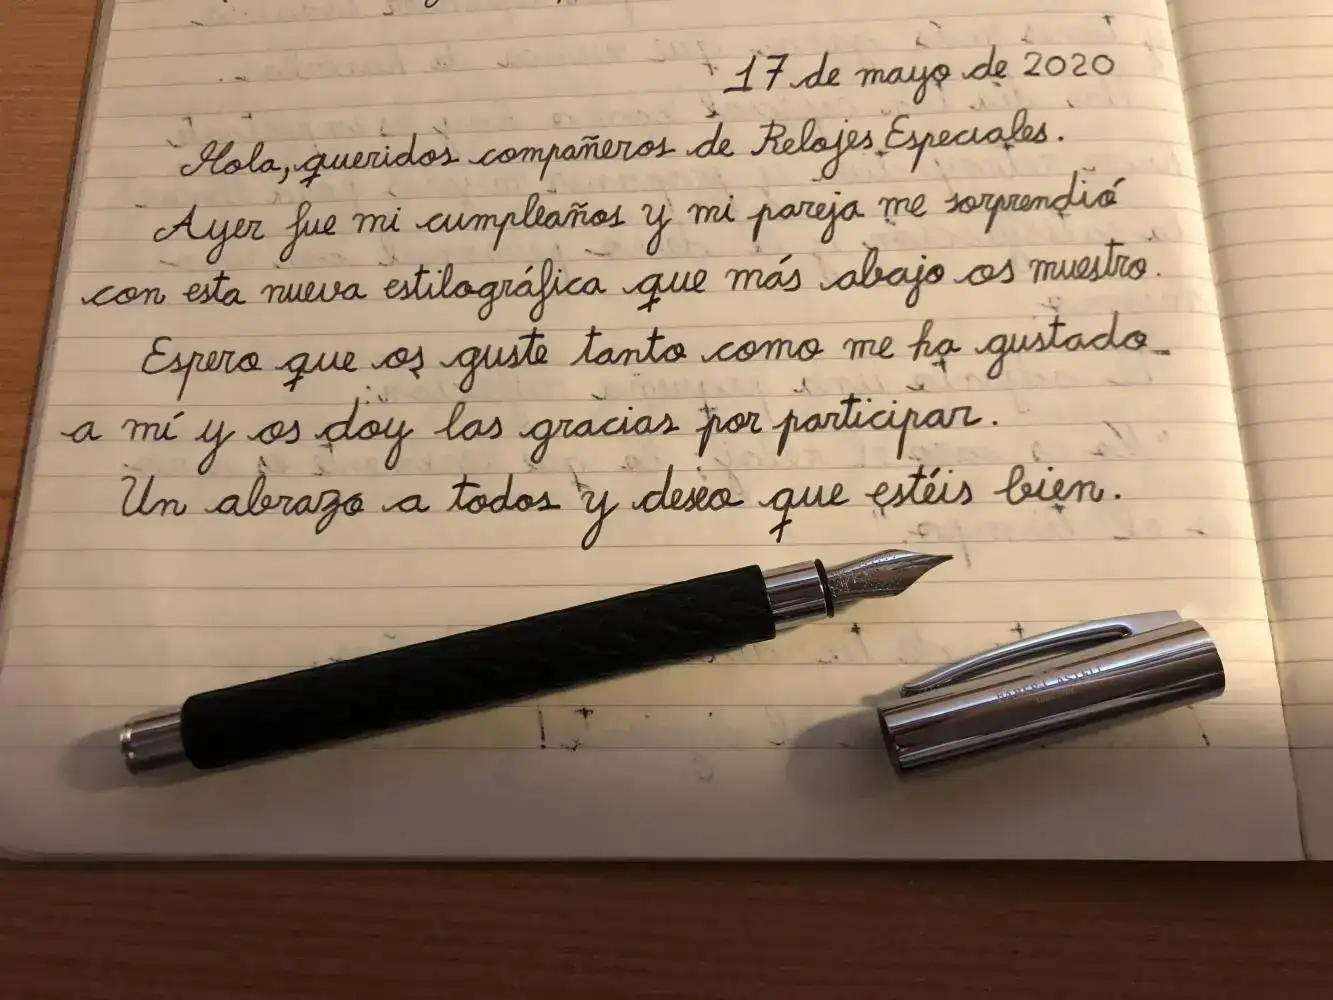 17 de mayo de 2020
Hola, queridos compañeros de Relojes Especiales.
Ayer fue mi cumpleaños y mi pareja me sorprendió
con esta nueva estilográfica que más abajo os muestro.
Espero que os guste tanto como me ha gustado
a mí y os doy las gracias por participar.
Un abrazo a todos y deseo que estéis bien.
FABER-CASTELL